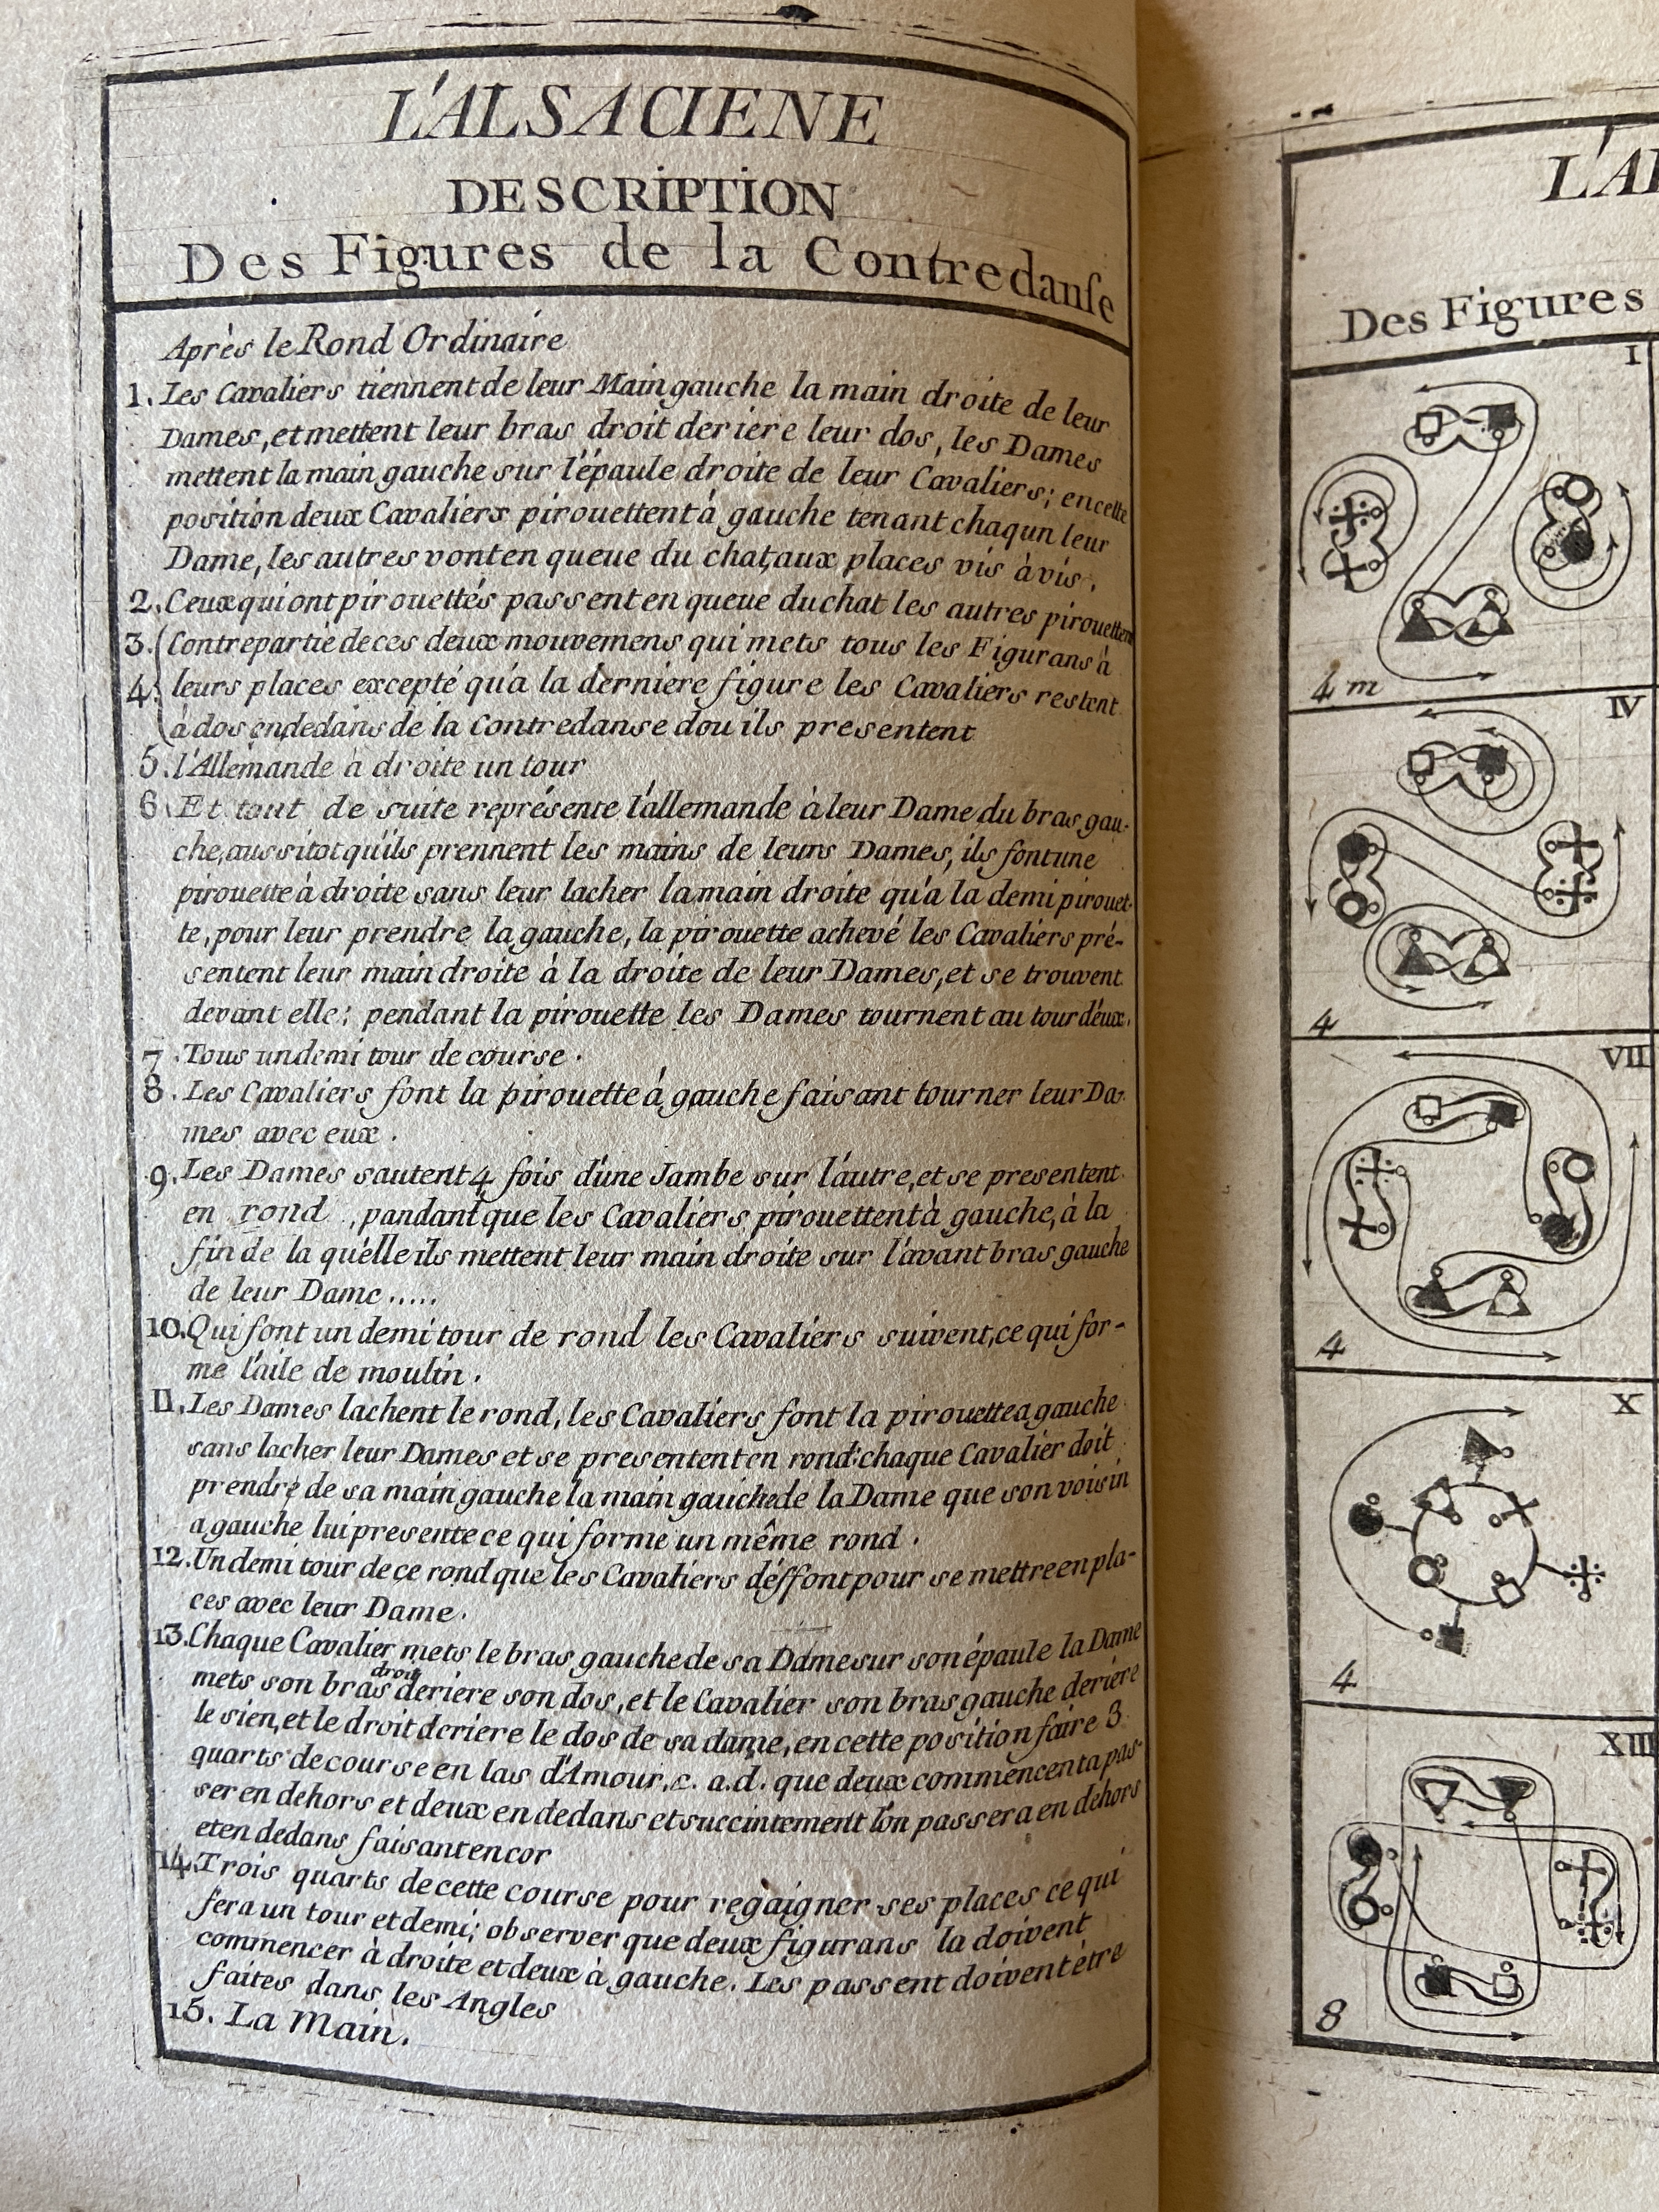 L'ALSACIENE
DESCRIPTION
Des Figures de la Contredanse
Après le Rond Ordinaire
1. Les Cavaliers tiennent de leur Main gauche la main droite de leur
Dames, et mettent leur bras droit deriere leur dos, les Dames
mettent la main gauche sur l'épaule droite de leur Cavaliers; en cette
position deux Cavaliers pirouettent à gauche tenant chaqun leur
Dame, les autres vont en queue du chat, aux places vis à vis.
2. Ceux qui ont pirouettés passent en queue du chat les autres pirouettent
3. Contrepartie de ces deux mouvemens qui mets tous les Figurans à
4. leurs places excepté qu'à la derniere figure les Cavaliers restent
à dos en dedans de la Contredanse dou ils presentent
5. l'Allemande à droite un tour
6. Et tout de suite représente l'allemande à leur Dame du bras gau-
che, aussitot qu'ils prennent les mains de leurs Dames, ils font une
pirouette à droite sans leur lacher la main droite qu'a la demi pirouet-
te, pour leur prendre la gauche, la pirouette achevé les Cavaliers pré-
sentent leur main droite à la droite de leur Dames, et se trouvent
devant elle; pendant la pirouette les Dames tournent au tour d'eux.
7. Tous un demi tour de course.
8. Les Cavaliers font la pirouette à gauche faisant tourner leur Da-
mes avec eux.
9. Les Dames sautent 4 fois d'une Jambe sur l'autre, et se presentent
en rond, pandant que les Cavaliers pirouettent à gauche, à la
fin de la qu'elle ils mettent leur main droite sur l'avant bras gauche
de leur Dame.....
10. Qui font un demi tour de rond les Cavaliers suivent, ce qui for-
me l'aile de moulin.
11. Les Dames lachent le rond, les Cavaliers font la pirouette a gauche
sans lacher leur Dames et se presentent en rond: chaque Cavalier doit
prendre de sa main gauche la main gauche de la Dame que son voisin
a gauche lui presente ce qui forme un même rond.
12. Un demi tour de ce rond que les Cavaliers déffont pour se mettre en pla-
ces avec leur Dame.
13. Chaque Cavalier mets le bras gauche de sa Dame sur son épaule la Dame
mets son bras droit deriere son dos, et le Cavalier son bras gauche deriere
le sien, et le droit deriere le dos de sa dame, en cette position faire 3
quarts de course en las d'Amour, c. a. d. que deux commencent a pas-
ser en dehors et deux en dedans et succintement l'on passera en dehors
et en dedans faisant encor
14. Trois quarts de cette course pour regaigner ses places ce qui
fera un tour et demi; observer que deux figurans la doivent
commencer à droite et deux à gauche. Les passent doivent être
faites dans les Angles
15. La Main.
L'AL
Des Figures
I
4 m
IV
4
VII
4
X
4
XIII
8